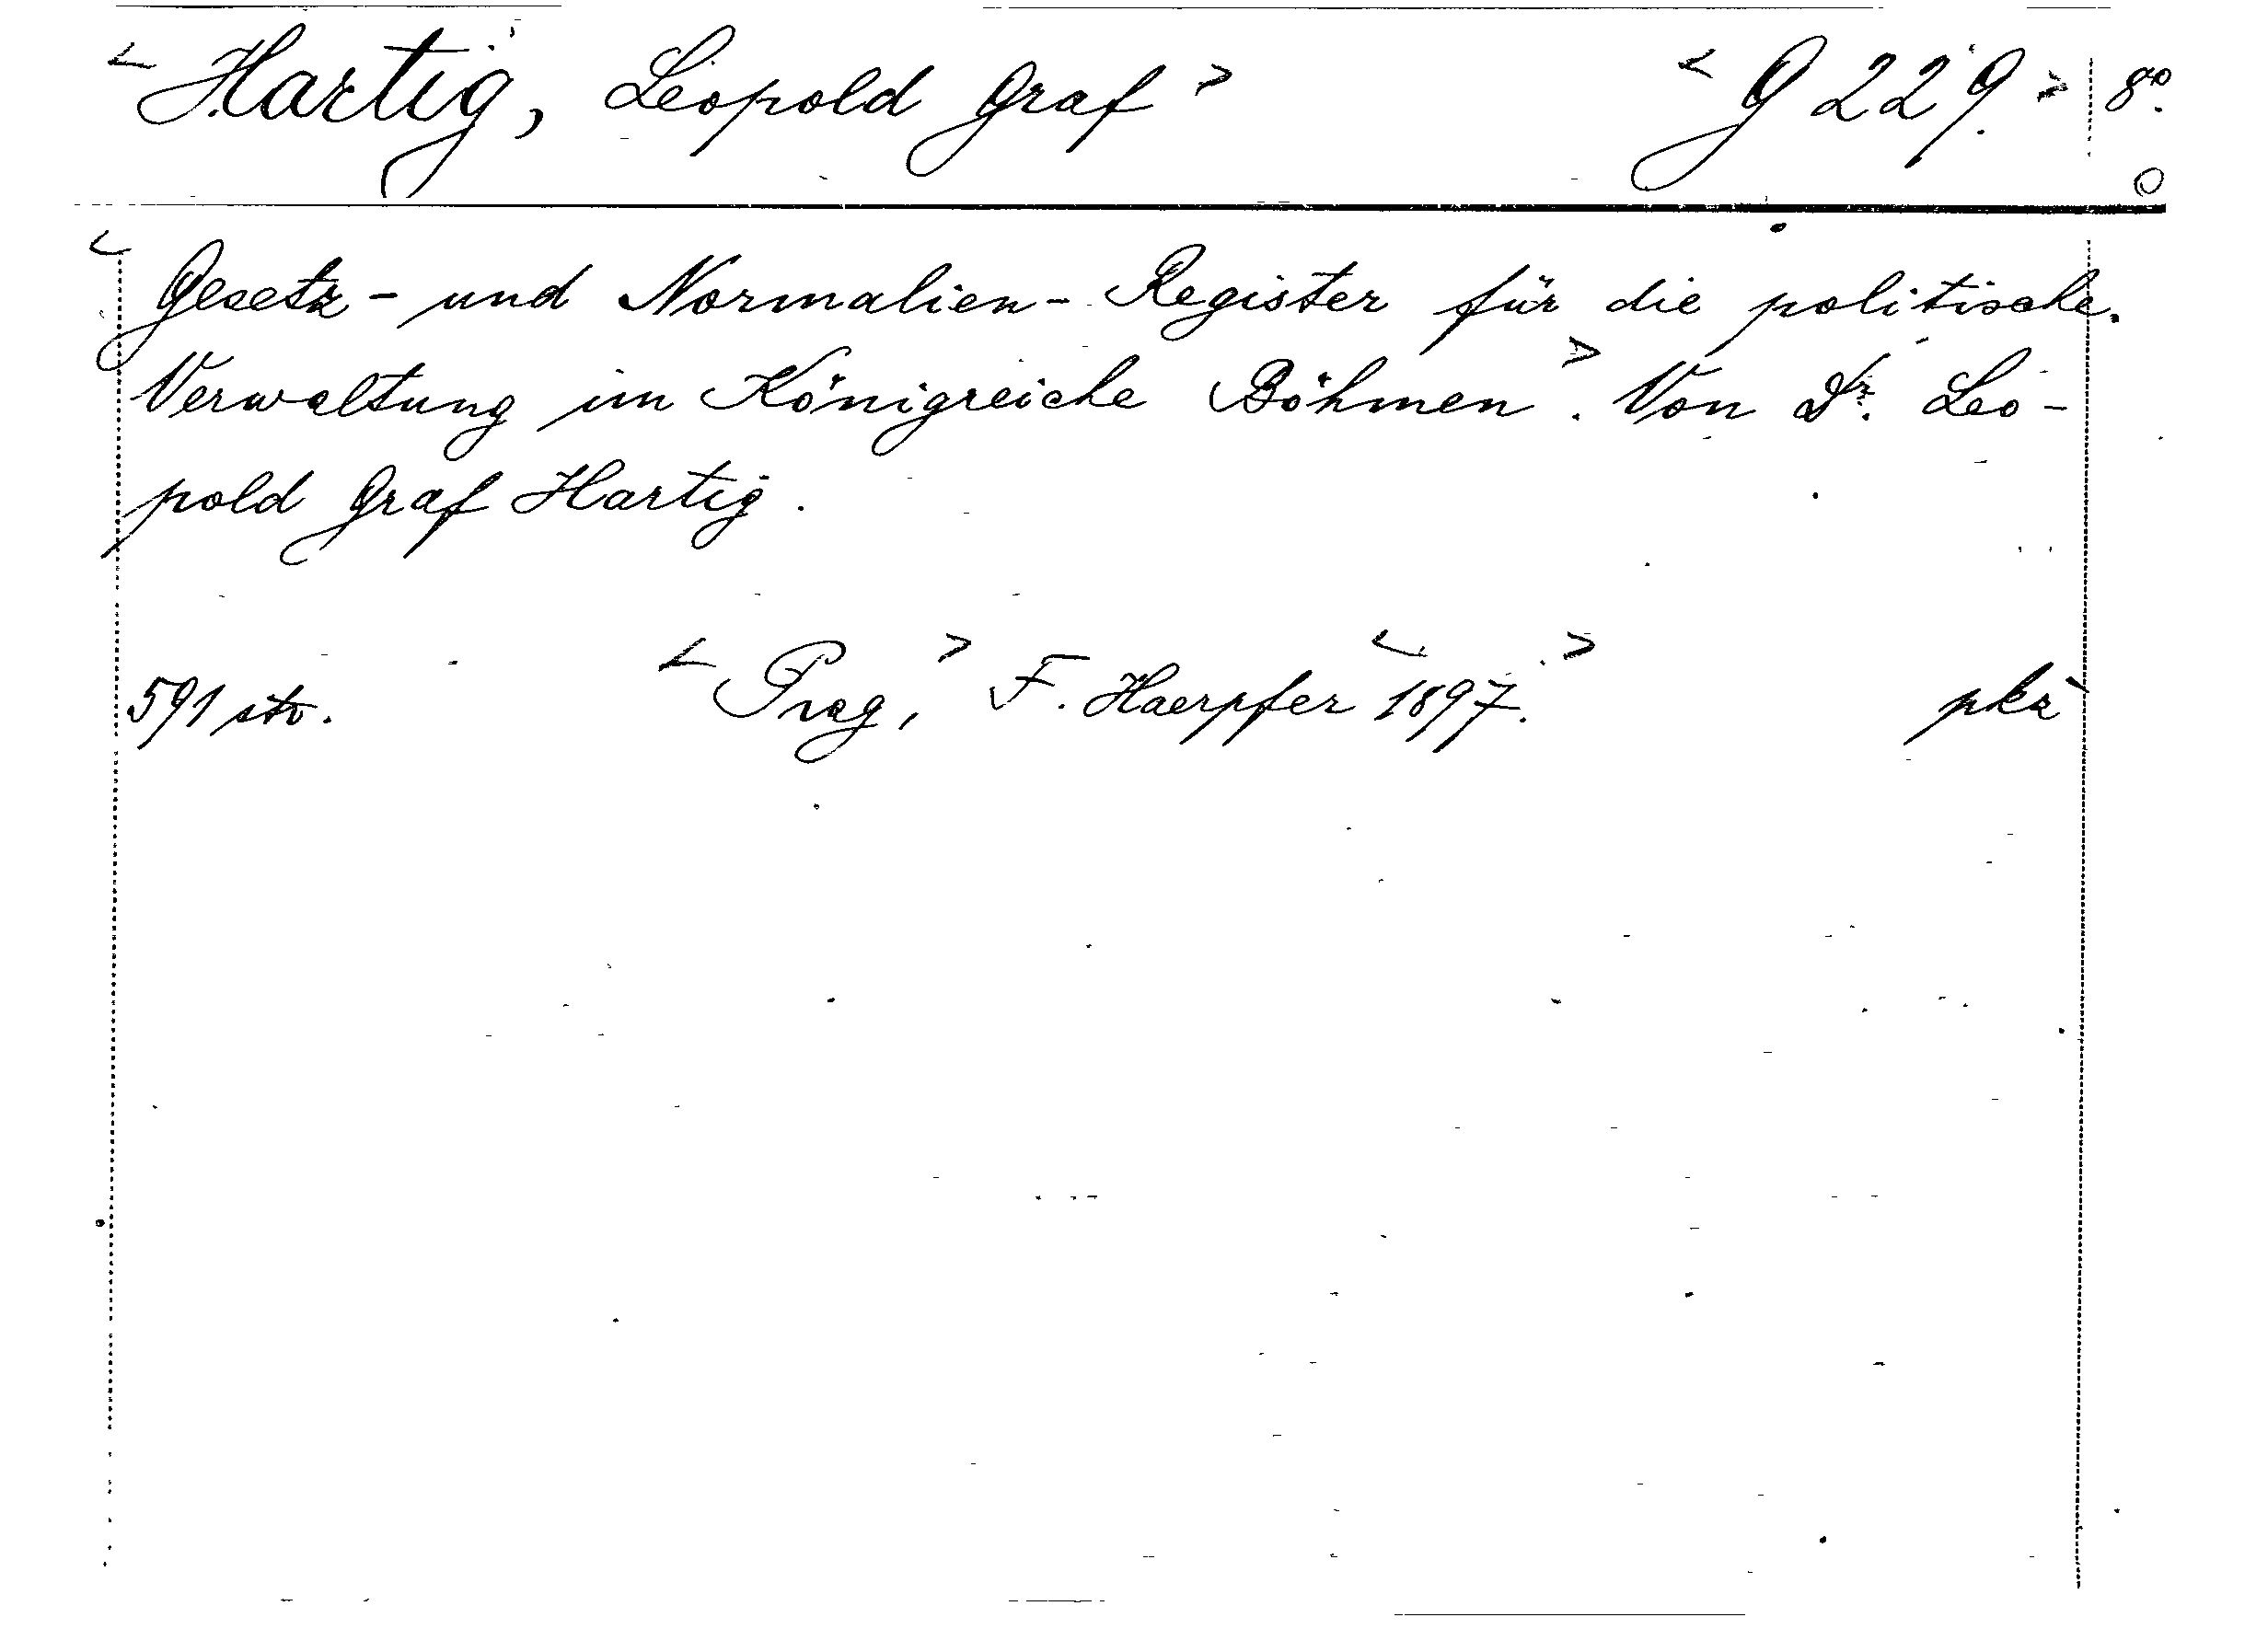 < Hartig, Leopold Graf > < G 229. > 8°.
< Gesetz- und Normalien-Register für die politische
Verwaltung im Königreiche Böhmen >. Von Dr. Leo-
pold Graf Hartig.
591 str. < Prag, > F. Haerpfer < 1897. > pkz